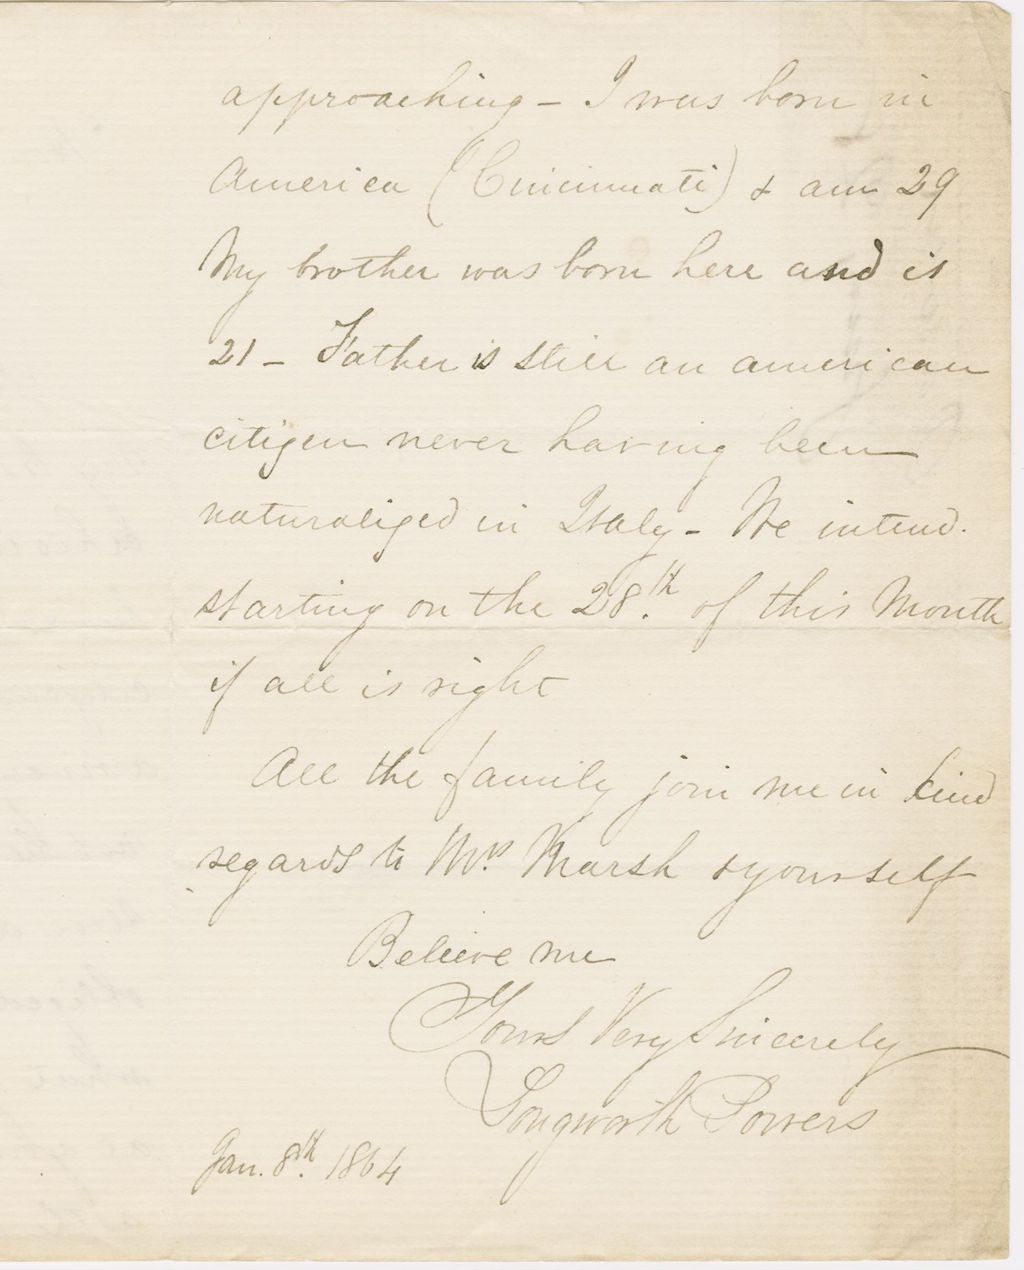 approaching – I was born in
America (Cincinnati) & am 29
My brother was born here and is
21 – Father is still an american
citizen never having been
naturalized in Italy – We intend
starting on the 28.th of this Month
if all is right
All the family join me in kind
regards to Mrs. Marsh & yourself
Believe me
Yours Very Sincerely
Longworth Powers
Jan. 8.th 1864